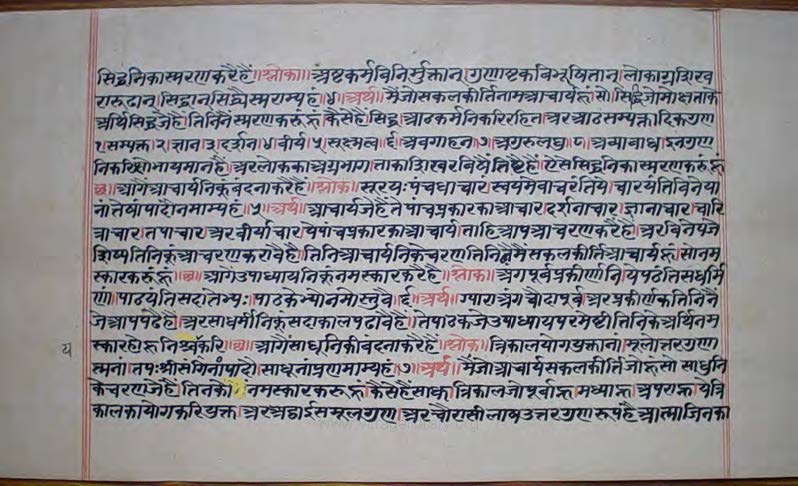 सिद्धनिकास्मरणकरैहैं॥श्लोक॥अष्टकर्मविनिर्मुक्तान्गुणाष्टकविभूषितान्।लोकाग्रशिख
रारूढान्।सिद्धान्सिद्ध्यैस्मराम्यहं॥४॥अर्थ॥मैंजोसकलकीर्तिनामआचार्यहूंसो।सिद्धजोमोक्षताके
अर्थिसिद्धजेहैंतिनिनैस्मरणकरूंहूंकैसेहैंसिद्धआठकर्मनिकरिरहित।अरआठसम्यक्तादिकगुण
१सम्यक्त।२ज्ञान।३दर्शन।४वीर्य।५सूक्ष्मत्व।६अवगाहन।७अगुरुलघु।८अव्याबाध।इनगुण
निकरिशोभायमानहैं।अरलोककाअग्रभागताकाशिखरविषैंतिष्ठैहैं।ऐसेसिद्धनिकास्मरणकरूंहूं
॥छ॥आगेंआचार्यनिकूंवंदनाकरैहैं॥श्लोक॥सूरयःपंचधाचारंस्वयमेवाचरंतिये।चारयंतिविनेया
नांतेषांपादौनमाम्यहं॥५॥अर्थ॥आचार्यजेहैंतेपांचप्रकारकाआचार।दर्शनाचार।ज्ञानाचार।चारि
त्राचार।तपाचार।अरवीर्याचार।येपांचप्रकारकाआचार्य।ताहिआपआचरणकरैहैं।अरविनेयजे
शिष्यतिनिकूंआचरणकरावैहैं।तिनिआचार्यनिकेचरणतिनिनैमैंसकलकीर्तिआचार्यहूं।सोनम
स्कारकरूंहूं॥छ॥आगेंउपाध्यायनिकूंनमस्कारकरैहैं॥श्लोक॥अंगपूर्वप्रकीर्णानियेपठंतिसधर्मि
णां॥पाठयंतिसदातेभ्यः।पाठकेभ्योनमोस्तुवै॥६॥अर्थ॥ग्याराअंगचौदापूर्व।अरप्रकीर्णकतिनिनै
जेआपपढैहैं।अरसाधर्मीनिकूंसदाकालपढावैहैं।तेपाठकजेउपाध्यायपरमेष्ठीतिनिकेअर्थिनम
य
स्कारहोहु॥छ॥आगेंसाधूनिकीवंदनाकरैहैं॥श्लोक॥त्रिकालयोगयुक्तानां।मूलोत्तरगुणा
त्मनां।तपःश्रीसंगिनांपादौ।साधूनांप्रणमाम्यहं॥७॥अर्थ॥मैंजोआचार्यसकलकीर्तिजोहूंसोसाधुनि
केचरणजेहैंतिनको नमस्कारकरूहूं।कैसेहैंसाधू।त्रिकालजोपूर्वाह्न।मध्याह्न।अपराह्न।येत्रि
कालकायोगकरियुक्त।अरअठाईसमूलगुण।अरचौरासीलाषउत्तरगुणरूपहैआत्माजिनका